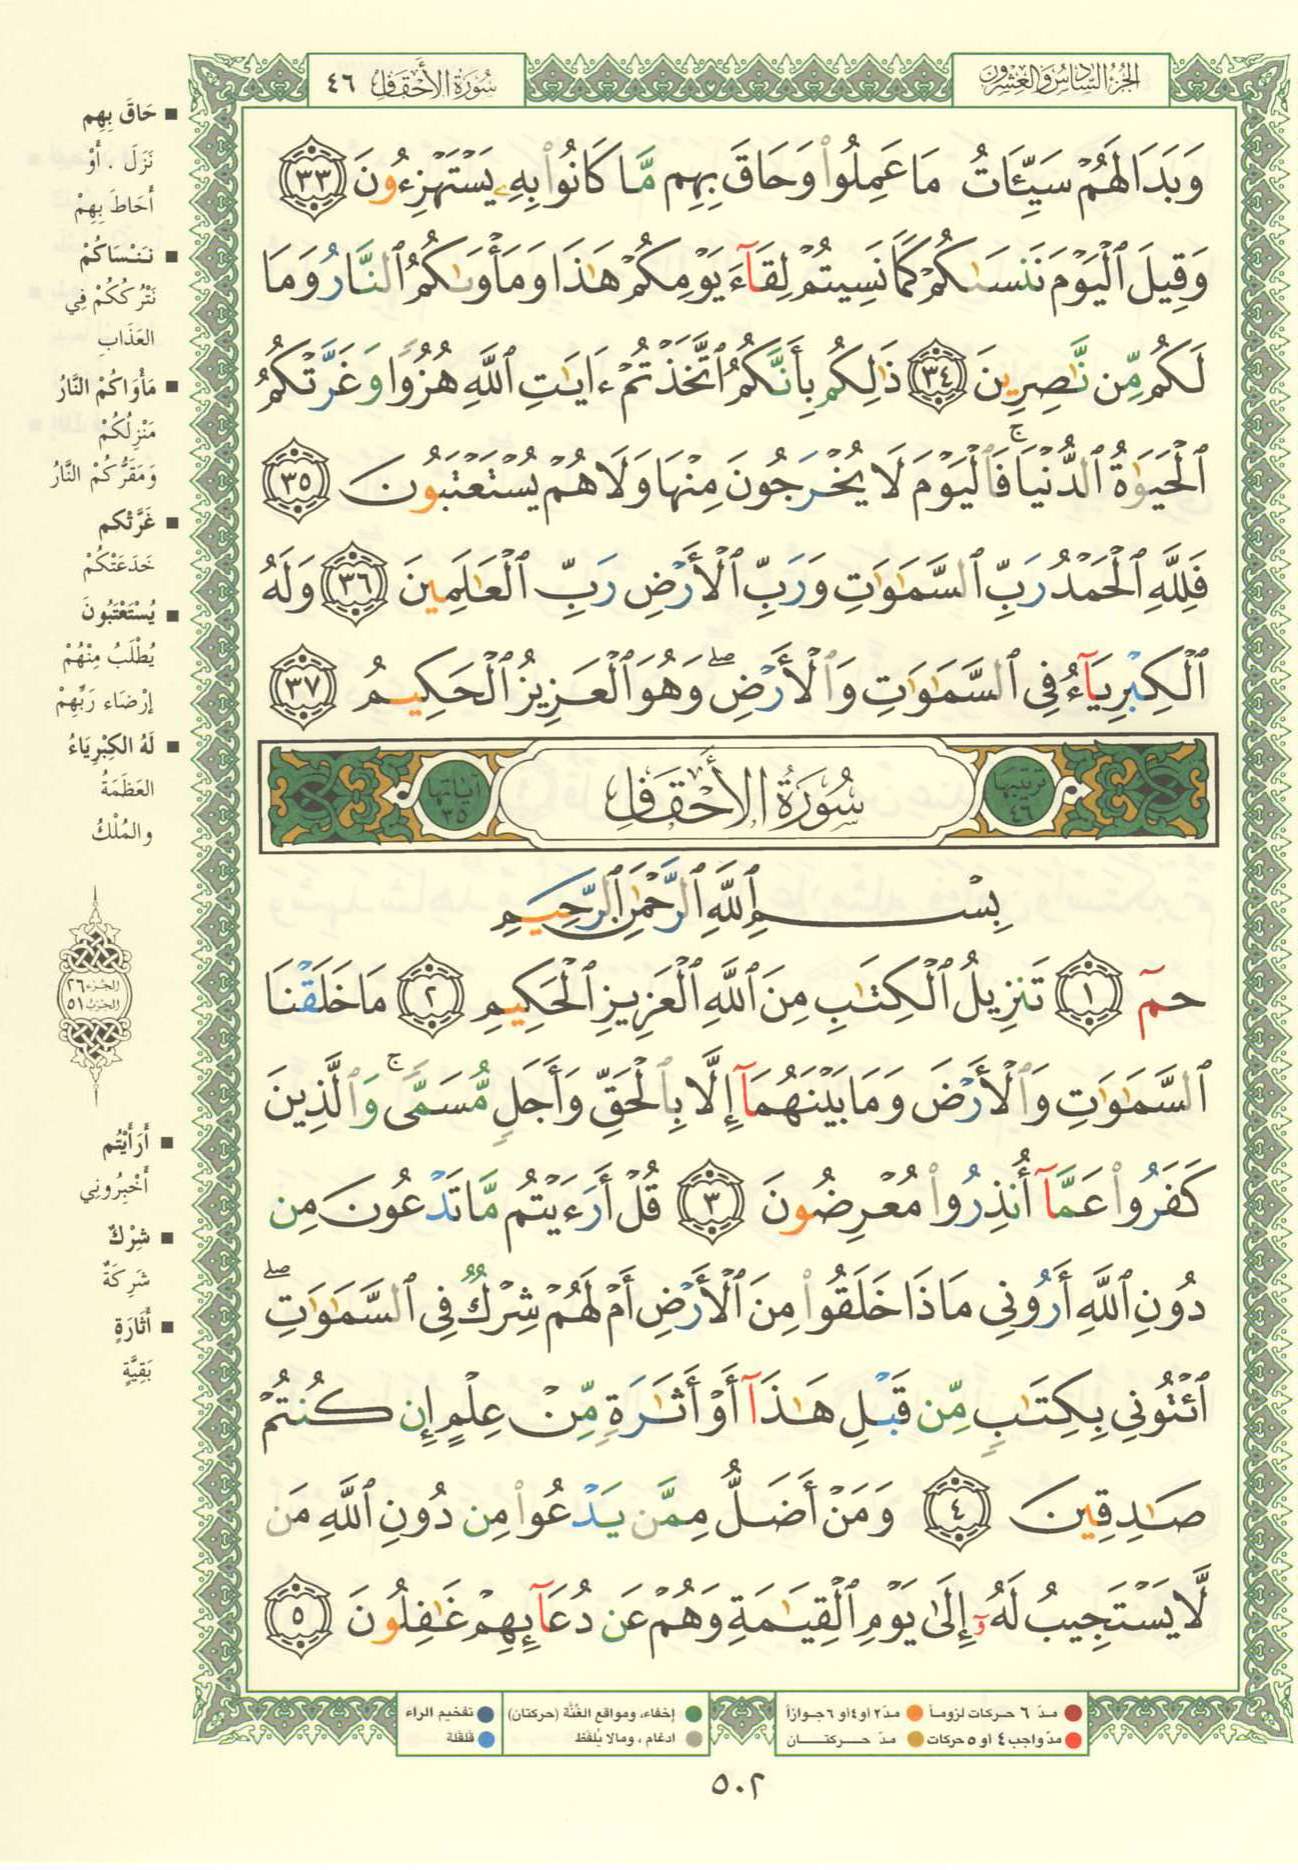 الجزء السادس والعشرون
سورة الأحقاف ٤٦
وَبَدَا لَهُمْ سَيِّـَٔاتُ مَا عَمِلُوا۟ وَحَاقَ بِهِم مَّا كَانُوا۟ بِهِۦ يَسْتَهْزِءُونَ ٣٣
وَقِيلَ ٱلْيَوْمَ نَنسَىٰكُمْ كَمَا نَسِيتُمْ لِقَآءَ يَوْمِكُمْ هَـٰذَا وَمَأْوَىٰكُمُ ٱلنَّارُ وَمَا
لَكُم مِّن نَّـٰصِرِينَ ٣٤ ذَٰلِكُم بِأَنَّكُمُ ٱتَّخَذْتُمْ ءَايَـٰتِ ٱللَّهِ هُزُوًا وَغَرَّتْكُمُ
ٱلْحَيَوٰةُ ٱلدُّنْيَا ۚ فَٱلْيَوْمَ لَا يُخْرَجُونَ مِنْهَا وَلَا هُمْ يُسْتَعْتَبُونَ ٣٥
فَلِلَّهِ ٱلْحَمْدُ رَبِّ ٱلسَّمَـٰوَٰتِ وَرَبِّ ٱلْأَرْضِ رَبِّ ٱلْعَـٰلَمِينَ ٣٦ وَلَهُ
ٱلْكِبْرِيَآءُ فِى ٱلسَّمَـٰوَٰتِ وَٱلْأَرْضِ ۖ وَهُوَ ٱلْعَزِيزُ ٱلْحَكِيمُ ٣٧
ترتيبها ٤٦
سُورَةُ الأَحْقَافِ
آياتها ٣٥
بِسْمِ ٱللَّهِ ٱلرَّحْمَـٰنِ ٱلرَّحِيمِ
حمٓ ١ تَنزِيلُ ٱلْكِتَـٰبِ مِنَ ٱللَّهِ ٱلْعَزِيزِ ٱلْحَكِيمِ ٢ مَا خَلَقْنَا
ٱلسَّمَـٰوَٰتِ وَٱلْأَرْضَ وَمَا بَيْنَهُمَآ إِلَّا بِٱلْحَقِّ وَأَجَلٍ مُّسَمًّى ۚ وَٱلَّذِينَ
كَفَرُوا۟ عَمَّآ أُنذِرُوا۟ مُعْرِضُونَ ٣ قُلْ أَرَءَيْتُم مَّا تَدْعُونَ مِن
دُونِ ٱللَّهِ أَرُونِى مَاذَا خَلَقُوا۟ مِنَ ٱلْأَرْضِ أَمْ لَهُمْ شِرْكٌ فِى ٱلسَّمَـٰوَٰتِ ۖ
ٱئْتُونِى بِكِتَـٰبٍ مِّن قَبْلِ هَـٰذَآ أَوْ أَثَـٰرَةٍ مِّنْ عِلْمٍ إِن كُنتُمْ
صَـٰدِقِينَ ٤ وَمَنْ أَضَلُّ مِمَّن يَدْعُوا۟ مِن دُونِ ٱللَّهِ مَن
لَّا يَسْتَجِيبُ لَهُۥٓ إِلَىٰ يَوْمِ ٱلْقِيَـٰمَةِ وَهُمْ عَن دُعَآئِهِمْ غَـٰفِلُونَ ٥
■ حَاقَ بِهِم
نَزَلَ . أَوْ
أَحَاطَ بِهِمْ
■ نَنْسَاكُمْ
نَتْرُكُكُمْ فِي
العَذَابِ
■ مَأْوَاكُمُ النَّارُ
مَنْزِلُكُمْ
وَمَقَرُّكُمُ النَّارُ
■ غَرَّتْكم
خَدَعَتْكُمْ
■ يُسْتَعْتَبُونَ
يُطْلَبُ مِنْهُمْ
إرْضَاء رَبِّهِمْ
■ لَهُ الكِبْرِيَاءُ
العَظَمَةُ
والمُلْكُ
الجزء ٢٦
الحزب ٥١
■ أَرَأَيْتُم
أَخْبِرُونِي
■ شِرْكٌ
شَرِكَةٌ
■ أَثَارَةٍ
بَقِيَّةٍ
مدّ ٦ حركات لزوماً
مدّ ٢ أو ٤ أو ٦ جوازاً
مدّ واجب ٤ أو ٥ حركات
مدّ حركتان
إخفاء، ومواقع الغُنَّة (حركتان)
ادغام ، ومالا يُلفَظ
تفخيم الراء
قلقلة
٥٠٢